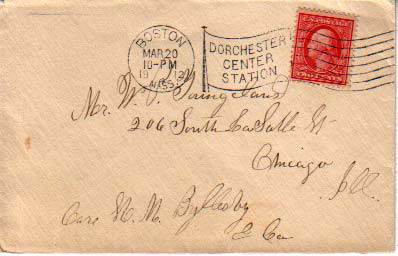 BOSTON
MAR 20
10-PM
1912
MASS.
DORCHESTER
CENTER
STATION
Mr. W.
206 South La Salle St
Chicago
Ill.
Care H. M. Byllesby
& Co